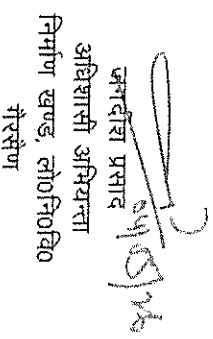 जगदीश प्रसाद
अधिशासी अभियन्ता
निर्माण खण्ड, लो०नि०वि०
गैरसैंण